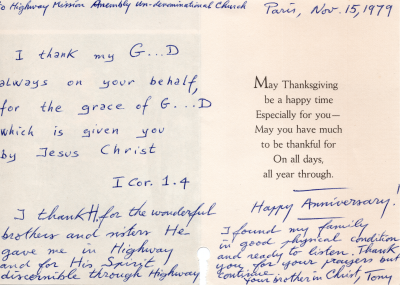 to Highway Mission Assembly Un-denominational Church
Paris, Nov. 15, 1979
I thank my G...D
always on your behalf,
for the grace of G...D
which is given you
by Jesus Christ
I Cor. 1.4
I thank H. for the wonderful
brothers and sisters He
gave me in Highway
and for His Spirit
discernible through Highway
May Thanksgiving
be a happy time
Especially for you—
May you have much
to be thankful for
On all days,
all year through.
Happy Anniversary!
I found my family
in good physical condition
and ready to listen. Thank
you for your prayers but
continue.
Your brother in Christ, Tony